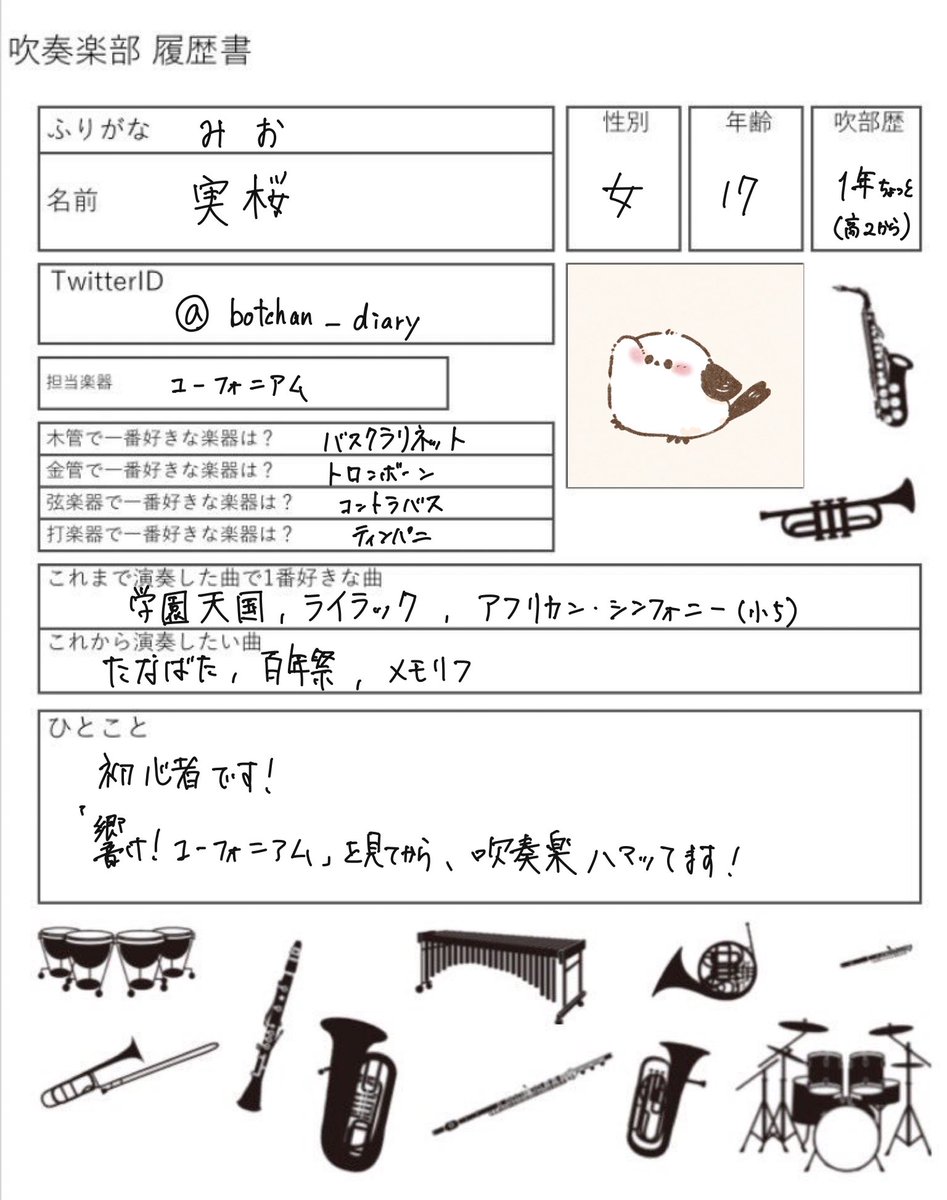 吹奏楽部 履歴書
ふりがな みお
名前 実桜
性別 女
年齢 17
吹部歴 1年ちょっと
(高2から)
TwitterID
@botchan_diary
担当楽器 ユーフォニアム
木管で一番好きな楽器は? バスクラリネット
金管で一番好きな楽器は? トロンボーン
弦楽器で一番好きな楽器は? コントラバス
打楽器で一番好きな楽器は? ティンパニ
これまで演奏した曲で1番好きな曲
学園天国, ライラック, アフリカン・シンフォニー(小5)
これから演奏したい曲
たなばた, 百年祭, メモリフ
ひとこと
初心者です!
「響け!ユーフォニアム」を見てから、吹奏楽ハマッてます!